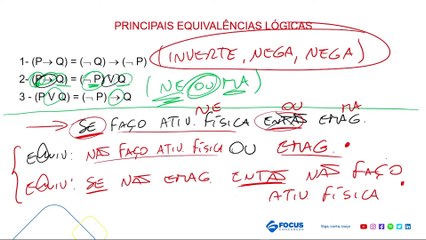 PRINCIPAIS EQUIVALÊNCIAS LÓGICAS
1- (P → Q) = (¬ Q) → (¬ P)
(INVERTE, NEGA, NEGA)
2- (P → Q) = (¬ P) V Q
(NE OU MA)
3 - (P V Q) = (¬ P) → Q
NE OU MA
→ SE FAÇO ATIV. FÍSICA ENTÃO EMAG.
EQUIV: NÃO FAÇO ATIV. FÍSICA OU EMAG.
EQUIV: SE NÃO EMAG. ENTÃO NÃO FAÇO
ATIV FÍSICA.
FOCUS
CONCURSOS